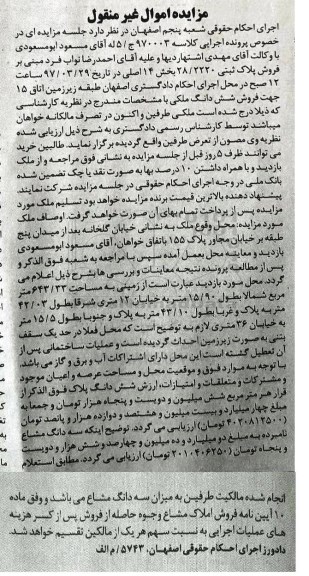 مزایده اموال غیر منقول
اجرای احکام حقوقی شعبه پنجم اصفهان در نظر دارد جلسه مزایده ای در
خصوص پرونده اجرایی کلاسه ۹۷۰۰۰۳ ج / ۵ له آقای مسعود ابومسعودی
با وکالت آقای مهدی اشتهاردیها و علیه آقای احمدرضا نواب فرد مبنی بر
فروش پلاک ثبتی ۲۸/۲۲۲۰ بخش ۱۴ اصلی در تاریخ ۹۷/۰۳/۲۹ ساعت
۱۲ صبح در محل اجرای احکام دادگستری اصفهان طبقه زیرزمین اتاق ۱۵
جهت فروش شش دانگ ملکی با مشخصات مندرج در نظریه کارشناسی
که ذیلا درج شده است ملکی طرفین و اکنون در تصرف مالکانه خواهان
میباشد توسط کارشناس رسمی دادگستری به شرح ذیل ارزیابی شده
نظریه وی مصون از تعرض طرفین واقع گردیده برگزار نماید. طالبین خرید
می توانند ظرف ۵ روز قبل از جلسه مزایده به نشانی فوق مراجعه و از ملک
بازدید و با همراه داشتن ۱۰ درصد بها به صورت نقد یا چک تضمین شده
بانک ملی در وجه اجرای احکام حقوقی در جلسه مزایده شرکت نمایند.
پیشنهاد دهنده بالاترین قیمت برنده مزایده خواهد بود تسلیم ملک مورد
مزایده پس از پرداخت تمام بهای آن صورت خواهد گرفت. اوصاف ملک
مورد مزایده: محل وقوع ملک به نشانی خیابان گلخانه بعد از میدان پنج
طبقه بر خیابان مجاور پلاک ۱۵۵ باتفاق خواهان، آقای مسعود ابومسعودی
بازدید و معاینه محل بعمل آمده سپس با مراجعه به شعبه فوق الذکر و
پس از مطالعه پرونده نتیجه معاینات و بررسی ها بشرح ذیل اعلام می
گردد. محل مورد بازدید عبارت است از زمینی به مساحت ۶۴۳/۳۳ متر
مربع شمالا بطول ۱۵/۹۰ متر به خیابان ۱۲ متری شرقا بطول ۴۳/۰۲
متر به پلاک و غربا بطول ۴۳/۱۰ متر به پلاک و جنوبا بطول ۱۵/۵ متر
به خیابان ۳۶ متری لازم به توضیح است که محل فعلا در حد یک سقف
بتنی به صورت زیرزمین احداث گردیده است و عملیات ساختمانی پس از
آن تعطیل گشته است این محل دارای اشتراکات آب و برق و گاز می باشد
با توجه به موارد فوق و موقعیت محل و مساحت عرصه و اعیان موجود
و مشترکات و متعلقات و امتیازات، ارزش شش دانگ پلاک فوق الذکر از
قرار هر متر مربع شش میلیون و دویست و پنجاه هزار تومان و جمعا به
مبلغ چهار میلیارد و بیست میلیون و هشتصد و دوازده هزار و پانصد تومان
(۴۰۲۰۸۱۲۵۰۰ تومان) ارزیابی می گردد. توضیح اینکه سه دانگ مشاع
نامبرده به مبلغ دو میلیارد و ده میلیون و چهارصد و شش هزار و دویست
و پنجاه تومان (۲۰۱۰۴۰۶۲۵۰ تومان) ارزیابی می گردد. مطابق استعلام
انجام شده مالکیت طرفین به میزان سه دانگ مشاع می باشد و وفق ماده
۱۰ آیین نامه فروش املاک مشاع وجوه حاصله از فروش پس از کسر هزینه
های عملیات اجرایی به نسبت سهم هر یک از مالکین تقسیم خواهد شد.
دادورز اجرای احکام حقوقی اصفهان. ۵۷۴۳/ م الف